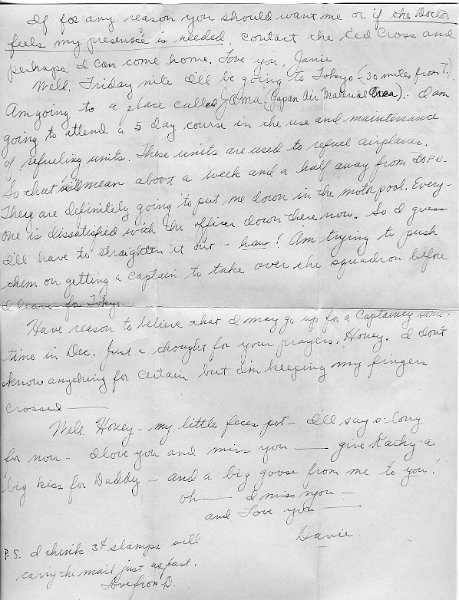 If for any reason you should want me or if the Doctor
feels my presence is needed, contact the Red Cross and
perhaps I can come home. Love you, Janie
Well, Friday nite I'll be going to Tokyo (30 miles from T.).
Am going to a place called JAMA (Japan Air Material Area). I am
going to attend a 5 day course in the use and maintenance
of refueling units. These units are used to refuel airplanes.
So that will mean about a week and a half away from
They are definitely going to put me down in the motor pool. Every-
one is dissatisfied with the officer down there now. So I guess
I'll have to straighten it out - haw! Am trying to push
them on getting a Captain to take over the squadron before
I leave for Tokyo.
Have reason to believe that I may go up for a Captaincy some-
time in Dec. Just a thought for your prayers, Honey. I don't
know anything for certain but I'm keeping my fingers
crossed —
Well Honey - my little feces pot - I'll say so-long
for now - I love you and miss you — give Kathy a
big kiss for Daddy - and a big goose from me to you!
oh — I miss you -
and Love you —
Davie
P.S. I think 3¢ stamps will
carry the mail just as fast.
Love from D.